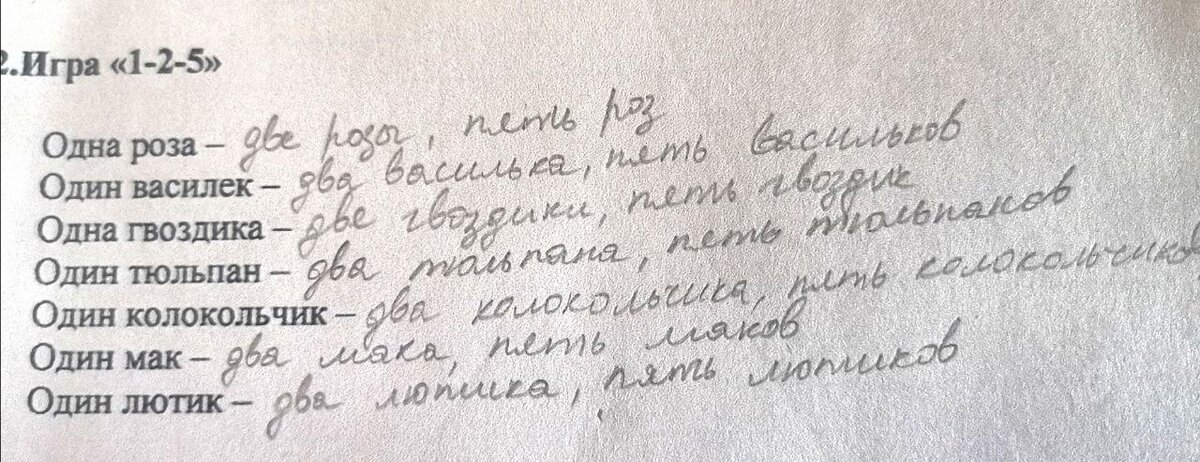 2.Игра «1-2-5»
Одна роза – две розы, пять роз
Один василек – два василька, пять васильков
Одна гвоздика – две гвоздики, пять гвоздик
Один тюльпан – два тюльпана, пять тюльпанов
Один колокольчик – два колокольчика, пять колокольчиков
Один мак – два мака, пять маков
Один лютик – два лютика, пять лютиков